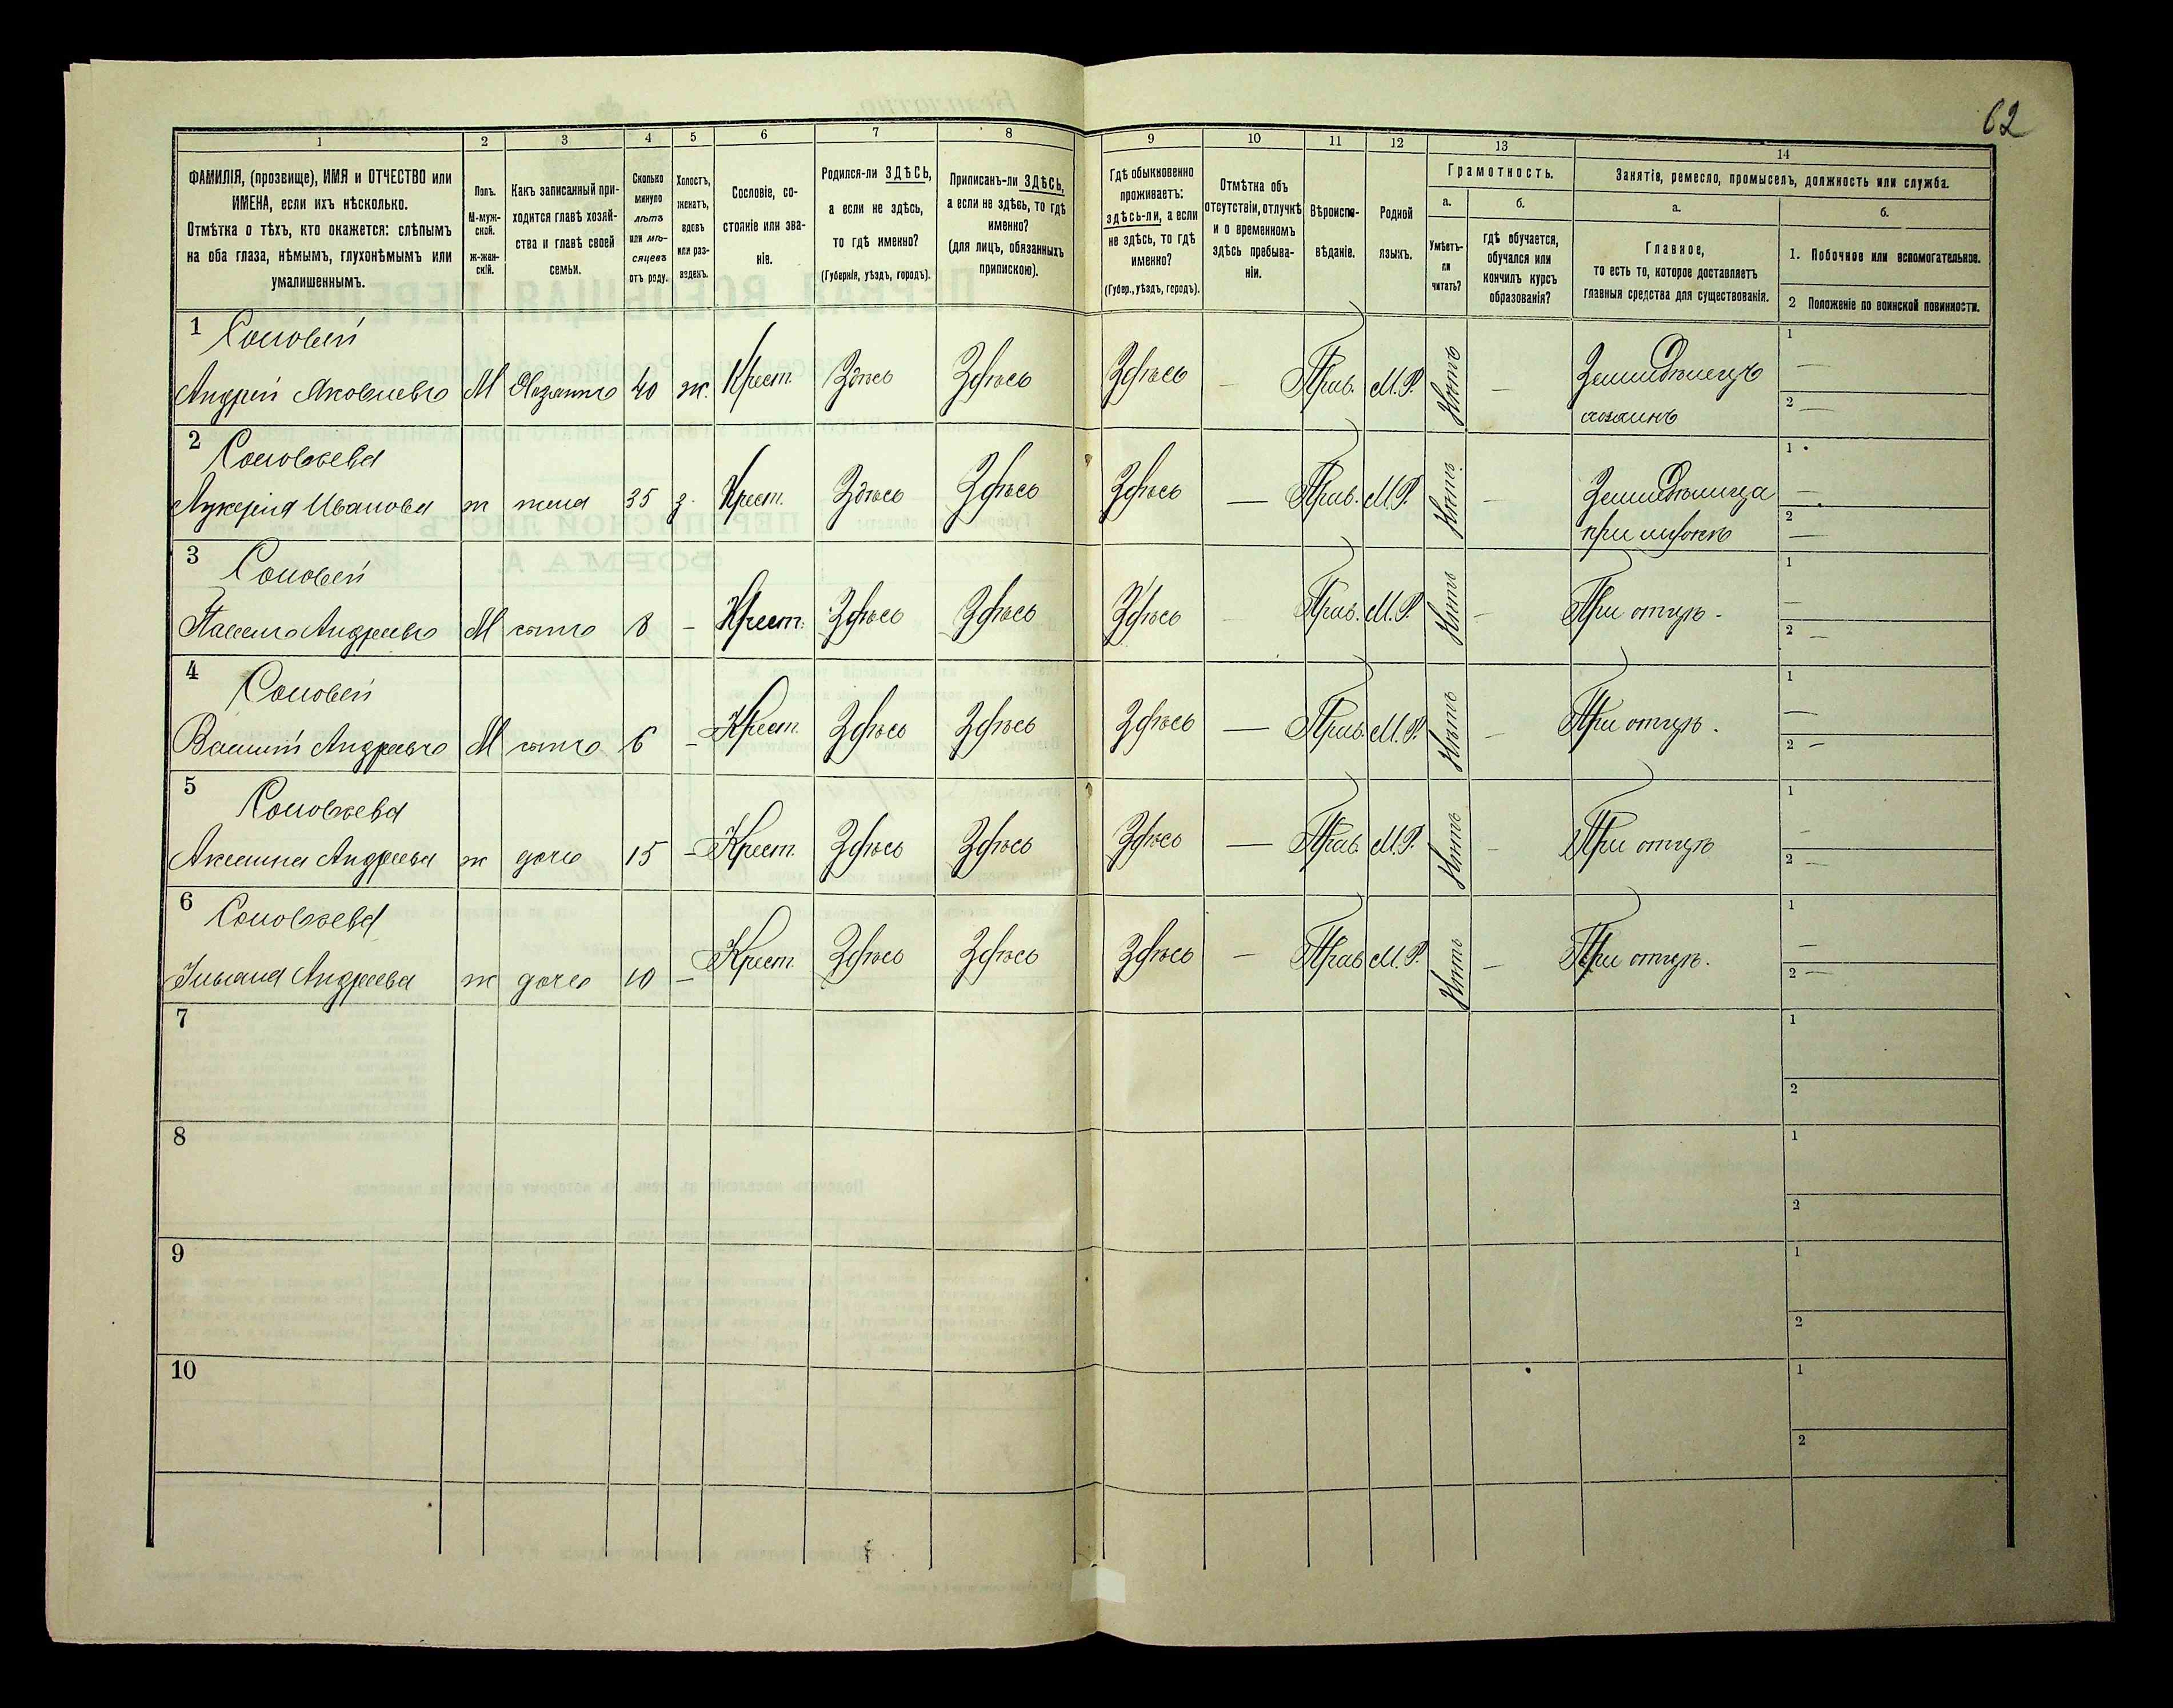 62
1 2 3 4 5 6 7 8 9 10 11 12 13 14
ФАМИЛІЯ, (прозвище), ИМЯ и ОТЧЕСТВО или
ИМЕНА, если ихъ нѣсколько.
Отмѣтка о тѣхъ, кто окажется: слѣпымъ
на оба глаза, нѣмымъ, глухонѣмымъ или
умалишеннымъ.
Полъ.
М-муж-
ской.
ж-жен-
скій.
Какъ записанный при-
ходится главѣ хозяй-
ства и главѣ своей
семьи.
Сколько
минуло
лѣтъ
или мѣ-
сяцевъ
отъ роду.
Холостъ,
женатъ,
вдовъ
или раз-
веденъ.
Сословіе, со-
стояніе или зва-
ніе.
Родился-ли ЗДѢСЬ,
а если не здѣсь,
то гдѣ именно?
(Губернія, уѣздъ, городъ).
Приписанъ-ли ЗДѢСЬ,
а если не здѣсь, то гдѣ
именно?
(для лицъ, обязанныхъ
припискою).
Гдѣ обыкновенно
проживаетъ:
здѣсь-ли, а если
не здѣсь, то гдѣ
именно?
(Губер., уѣздъ, городъ).
Отмѣтка объ
отсутствіи, отлучкѣ
и о временномъ
здѣсь пребыва-
ніи.
Вѣроиспо-
вѣданіе.
Родной
языкъ.
Грамотность.
а.
Умѣетъ-
ли
читать?
б.
гдѣ обучается,
обучался или
кончилъ курсъ
образованія?
Занятія, ремесло, промыселъ, должность или служба.
а.
Главное,
то есть то, которое доставляетъ
главныя средства для существованія.
б.
1. Побочное или вспомогательное.
2 Положеніе по воинской повинности.
1 Соловей
Андрей Яковлевъ М Хозяинъ 40 ж. Крест. Здѣсь Здѣсь Здѣсь — Прав. М.Р. Нѣтъ — Земледѣлецъ 1 —
хозяинъ 2 —
2 Соловьева
Лукерія Иванова ж жена 35 з. Крест. Здѣсь Здѣсь Здѣсь — Прав. М.Р. Нѣтъ — Земледѣлица 1 —
при мужѣ 2 —
3 Соловей
Андреевъ М сынъ 8 — Крест. Здѣсь Здѣсь Здѣсь Прав. М.Р. Нѣтъ — При отцѣ. 1 —
2 —
4 Соловей
Василій Андреевъ М сынъ 6 — Крест. Здѣсь Здѣсь Здѣсь — Прав. М.Р. Нѣтъ — При отцѣ. 1 —
2 —
5 Соловьева
Аксинія Андреева ж дочь 15 — Крест. Здѣсь Здѣсь Здѣсь — Прав. М.Р. Нѣтъ — При отцѣ 1 —
2 —
6 Соловьева
Андреева ж дочь 10 — Крест. Здѣсь Здѣсь Здѣсь — Прав. М.Р. Нѣтъ — При отцѣ. 1 —
2 —
7 1
2
8 1
2
9 1
2
10 1
2